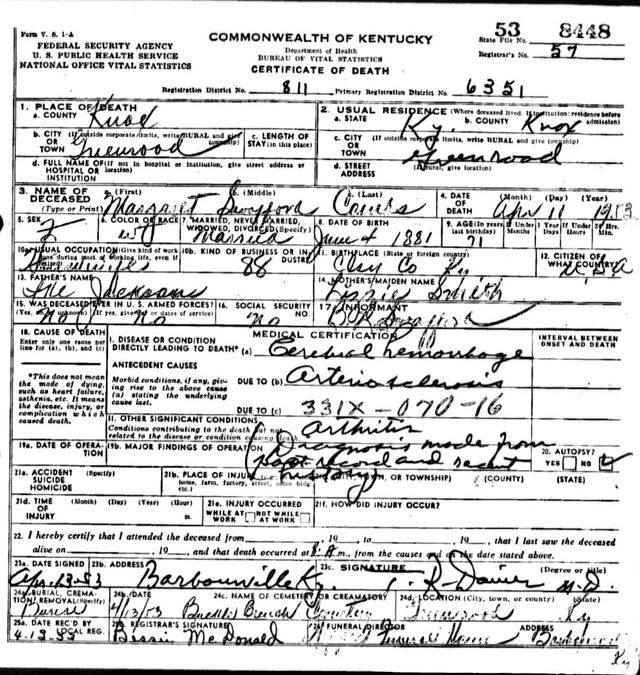 Form V. S. 1-A
FEDERAL SECURITY AGENCY
U. S. PUBLIC HEALTH SERVICE
NATIONAL OFFICE VITAL STATISTICS
COMMONWEALTH OF KENTUCKY
Department of Health
BUREAU OF VITAL STATISTICS
CERTIFICATE OF DEATH
53 8448
State File No.
Registrar's No. 57
Registration District No. 811 Primary Registration District No. 6351
1. PLACE OF DEATH
a. COUNTY Knox
b. CITY (If outside corporate limits, write RURAL and give township)
OR TOWN
c. LENGTH OF STAY (in this place)
d. FULL NAME OF (If not in hospital or institution, give street address or location)
HOSPITAL OR INSTITUTION
2. USUAL RESIDENCE (Where deceased lived. If institution: residence before admission)
a. STATE Ky. b. COUNTY Knox
c. CITY (If outside corporate limits, write RURAL and give township)
OR TOWN
d. STREET ADDRESS (If rural, give location)
3. NAME OF DECEASED (Type or Print)
a. (First) b. (Middle) c. (Last)
Margaret
4. DATE OF DEATH (Month) (Day) (Year)
Apr 11 1953
5. SEX F
6. COLOR OR RACE W
7. MARRIED, NEVER MARRIED, WIDOWED, DIVORCED (Specify) Married
8. DATE OF BIRTH June 4 1881
9. AGE (In years last birthday) 71
If Under 1 Year Months Days
If Under 24 Hrs. Hours Min.
10a. USUAL OCCUPATION (Give kind of work done during most of working life, even if retired)
10b. KIND OF BUSINESS OR INDUSTRY 88
11. BIRTHPLACE (State or foreign country) Clay Co Ky
12. CITIZEN OF WHAT COUNTRY? U.S.A
13. FATHER'S NAME
14. MOTHER'S MAIDEN NAME Lizzie Smith
15. WAS DECEASED EVER IN U. S. ARMED FORCES?
(Yes, no, or unknown) (If yes, give war or dates of service)
No No
16. SOCIAL SECURITY NO. No
17. INFORMANT
18. CAUSE OF DEATH
Enter only one cause per line for (a), (b), and (c)
*This does not mean the mode of dying, such as heart failure, asthenia, etc. It means the disease, injury, or complication which caused death.
MEDICAL CERTIFICATION
INTERVAL BETWEEN ONSET AND DEATH
I. DISEASE OR CONDITION DIRECTLY LEADING TO DEATH* (a) Cerebral hemorrhage
ANTECEDENT CAUSES
Morbid conditions, if any, giving rise to the above cause (a) stating the underlying cause last.
DUE TO (b) Arteriosclerosis
DUE TO (c) 331X-070-16
II. OTHER SIGNIFICANT CONDITIONS
Conditions contributing to the death but not related to the disease or condition causing death.
Arthritis
19a. DATE OF OPERATION
19b. MAJOR FINDINGS OF OPERATION
Diagnosis made from past record and recent history
20. AUTOPSY? YES NO
21a. ACCIDENT SUICIDE HOMICIDE (Specify)
21b. PLACE OF INJURY (e.g., in or about home, farm, factory, street, office bldg., etc.)
21c. (CITY, TOWN, OR TOWNSHIP) (COUNTY) (STATE)
21d. TIME OF INJURY (Month) (Day) (Year) (Hour) m.
21e. INJURY OCCURRED WHILE AT WORK NOT WHILE AT WORK
21f. HOW DID INJURY OCCUR?
22. I hereby certify that I attended the deceased from , 19 , to , 19 , that I last saw the deceased
alive on , 19 , and that death occurred at m., from the causes and on the date stated above.
23a. DATE SIGNED Apr. 13-53
23b. ADDRESS Barbourville Ky.
23c. SIGNATURE (Degree or title) M.D.
24a. BURIAL, CREMATION, REMOVAL (Specify)
24b. DATE 4/13/53
24c. NAME OF CEMETERY OR CREMATORY Cemetery
24d. LOCATION (City, town, or county) (State) Ky
25a. DATE REC'D BY LOCAL REG. 4-13-53
25b. REGISTRAR'S SIGNATURE Bessie McDonald
26. FUNERAL DIRECTOR Funeral Home
ADDRESS
Ky